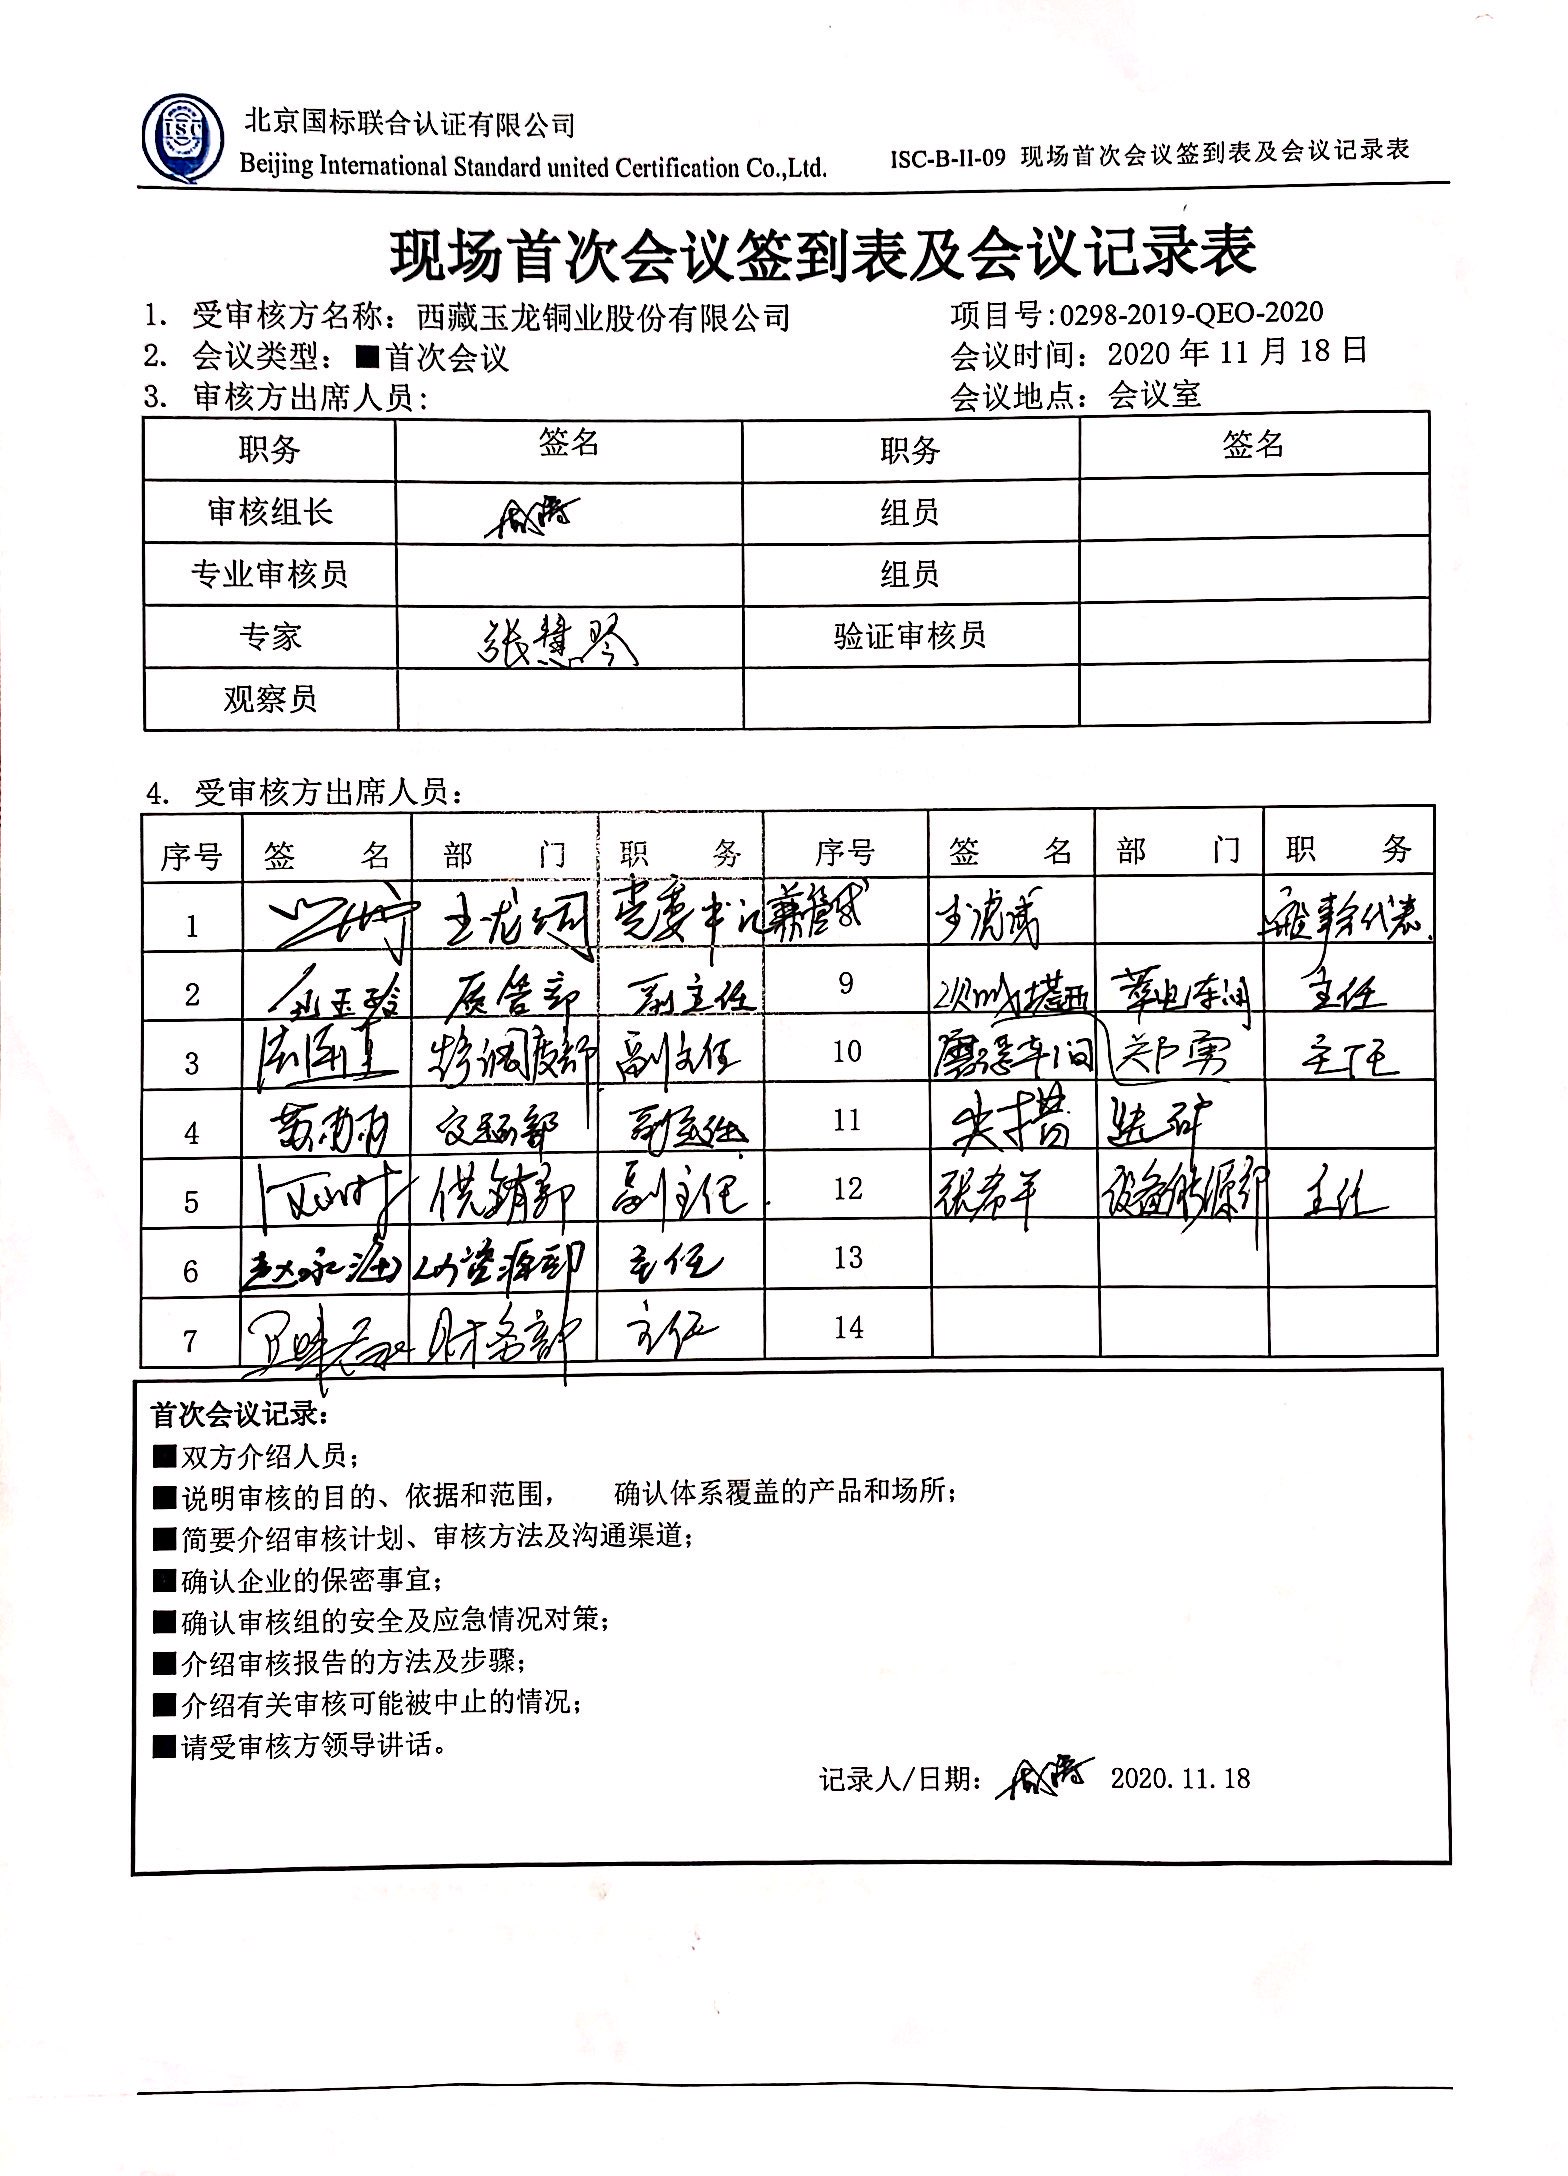 北京国标联合认证有限公司
Beijing International Standard united Certification Co.,Ltd.
ISC-B-II-09 现场首次会议签到表及会议记录表
ISC
现场首次会议签到表及会议记录表
1. 受审核方名称：西藏玉龙铜业股份有限公司 项目号:0298-2019-QEO-2020
2. 会议类型：■首次会议 会议时间：2020年11月18日
3. 审核方出席人员： 会议地点：会议室
职务 签名 职务 签名
审核组长 组员
专业审核员 组员
专家 张慧琴 验证审核员
观察员
4. 受审核方出席人员：
序号 签 名 部 门 职 务 序号 签 名 部 门 职 务
1 玉龙铜 党委书记兼管代
2 质管部 副主任 9 主任
3 副主任 10 郑勇 主任
4 副主任 11 选矿
5 供销部 副主任 12 张希平 设备能源部 主任
6 赵永 人力资源部 主任 13
7 财务部 主任 14
首次会议记录：
■双方介绍人员；
■说明审核的目的、依据和范围， 确认体系覆盖的产品和场所；
■简要介绍审核计划、审核方法及沟通渠道；
■确认企业的保密事宜；
■确认审核组的安全及应急情况对策；
■介绍审核报告的方法及步骤；
■介绍有关审核可能被中止的情况；
■请受审核方领导讲话。
记录人/日期： 2020.11.18